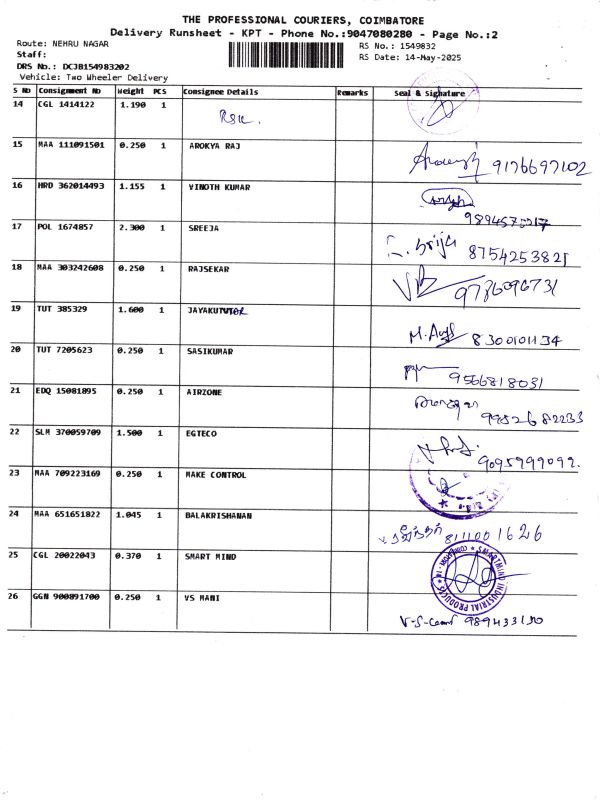 THE PROFESSIONAL COURIERS, COIMBATORE
Delivery Runsheet - KPT - Phone No.:9047080280 - Page No.:2
Route: NEHRU NAGAR
RS No.: 1549832
Staff:
RS Date: 14-May-2025
DRS No.: DCJB154983202
Vehicle: Two Wheeler Delivery
S No Consignment No Weight PCS Consignee Details Remarks Seal & Signature
14 CGL 1414122 1.190 1
15 MAA 111091501 0.250 1 AROKYA RAJ 9176697102
16 HRD 362014493 1.155 1 VINOTH KUMAR
17 POL 1674857 2.300 1 SREEJA 8754253821
18 MAA 303242608 0.250 1 RAJSEKAR
19 TUT 385329 1.600 1 8300101134
20 TUT 7205623 0.250 1 SASIKUMAR 9566818031
21 EDQ 15081895 0.250 1 AIRZONE 9952682233
22 SLM 370059709 1.500 1 EGTECO 9095999092.
23 MAA 709223169 0.250 1 MAKE CONTROL
24 MAA 651651822 1.045 1 BALAKRISHANAN 8111001626
25 CGL 20022043 0.370 1 SMART MIND SMARTMIND INDUSTRIAL PRODUCTS
26 GGN 900891700 0.250 1 VS MANI